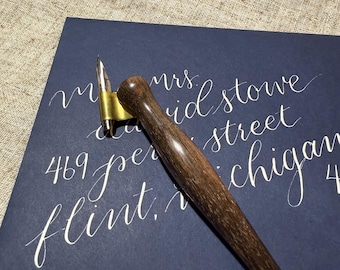 mrs
david stowe
469 street
flint, michigan
4